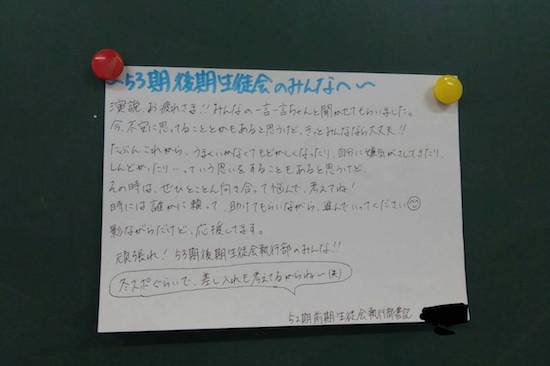 ~53期後期生徒会のみんなへ~
演説、お疲れさま!!みんなの一言一言ちゃんと聞かせてもらいました。
今、不安に思ってることとかもあると思うけど、きっとみんななら大丈夫!!
たぶんこれから、うまくいかなくてもどかしくなったり、自分に嫌気がさしてきたり、
しんどかったり…っていう思いをすることもあると思うけど、
その時は、ぜひとことん向き合って悩んで、考えてね!
時には誰かに頼って、助けてもらいながら、進んでいってください
影ながらだけど、応援してます。
頑張れ!53期後期生徒会執行部のみんな!!
冬スポぐらいで、差し入れも考えてるからね~(笑)
52期前期生徒会執行部書記